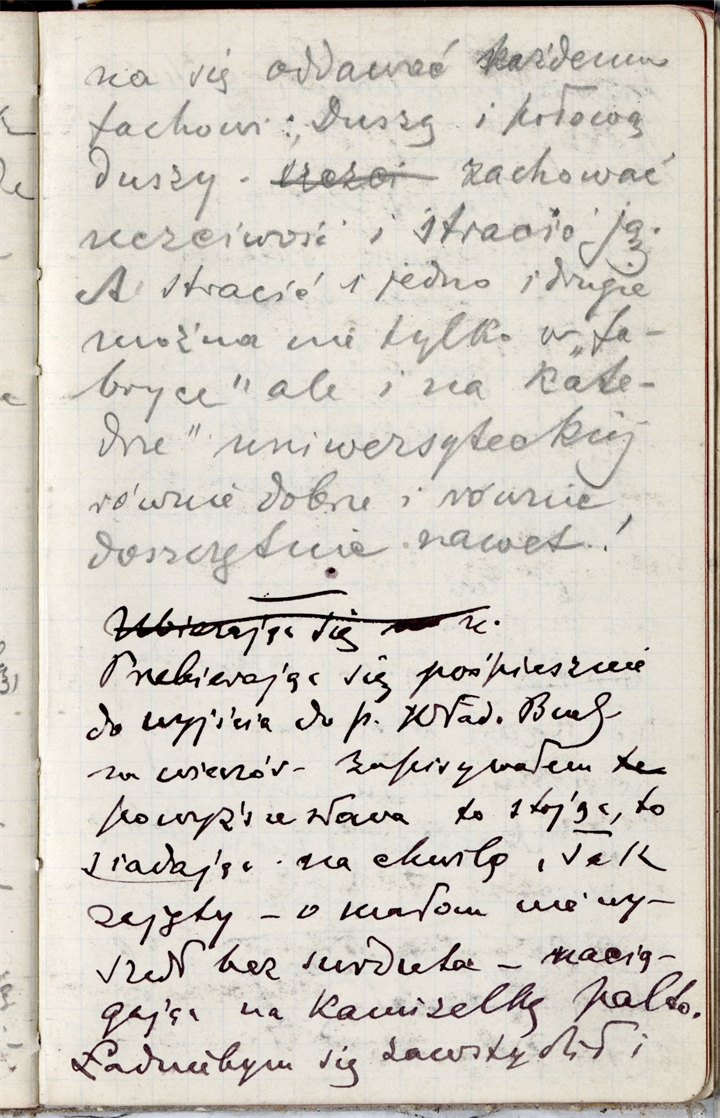 na się oddawać każdemu
fachowi: „Duszą i połową
duszy. uczci zachować
uczciwość i stracić ją.
A stracić i jedno i drugie
można nie tylko w „fa-
bryce" ale i na „kate-
drze" uniwersyteckiej
równie dobrze i równie
doszczętnie nawet!
Ubierając się
Przebierając się pośpiesznie
do wyjścia do p. Wład. Buch
na wieczór - zapisywałem te
powyższe słowa to stojąc, to
siadając na chwilę, tak
zajęty - o małom nie wy-
szedł bez surduta - nacią-
gając na kamizelkę palto.
Ładniebym się zawstydził i